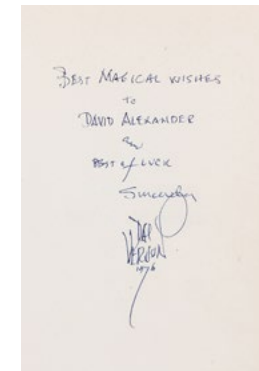 BEST MAGICAL WISHES
TO
DAVID ALEXANDER
and
BEST of LUCK
Sincerely
DAI
VERNON
1976